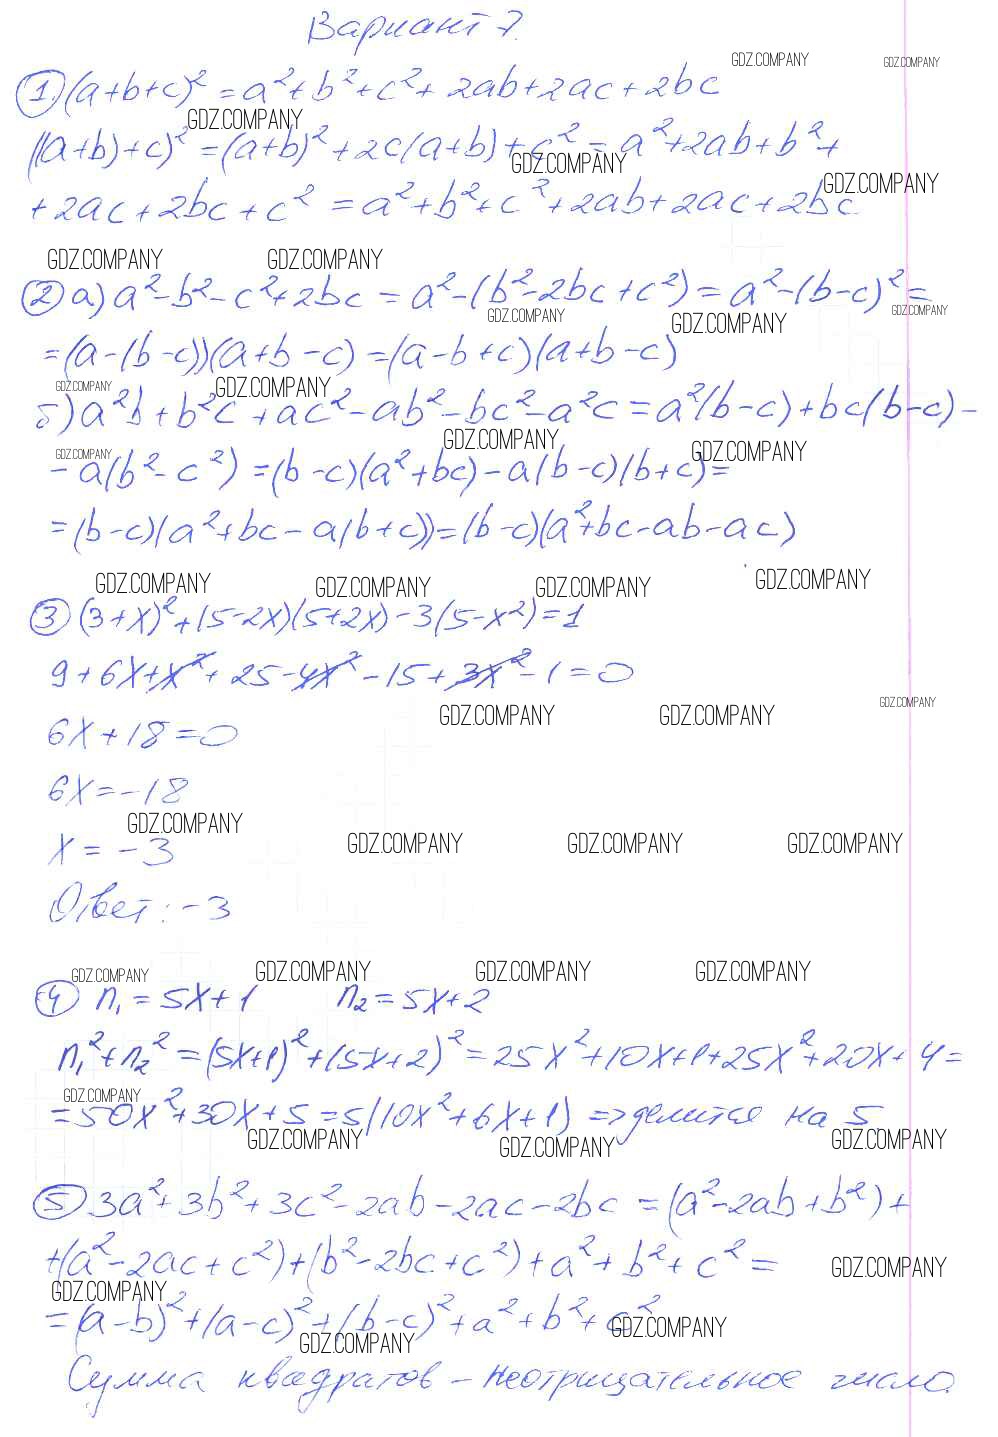 Вариант 7.
GDZ.COMPANY GDZ.COMPANY
① (a+b+c)² = a²+b²+c²+2ab+2ac+2bc
GDZ.COMPANY
((a+b)+c)² = (a+b)²+2c(a+b)+c² = a²+2ab+b²+
GDZ.COMPANY GDZ.COMPANY
+2ac+2bc+c² = a²+b²+c²+2ab+2ac+2bc.
GDZ.COMPANY GDZ.COMPANY
② а) a²-b²-c²+2bc = a²-(b²-2bc+c²) = a²-(b-c)² =
GDZ.COMPANY GDZ.COMPANY GDZ.COMPANY
=(a-(b-c))(a+b-c) =(a-b+c)(a+b-c)
GDZ.COMPANY GDZ.COMPANY
б) a²b+b²c+ac²-ab²-bc²-a²c = a²(b-c)+bc(b-c)-
GDZ.COMPANY GDZ.COMPANY GDZ.COMPANY
-a(b²-c²) =(b-c)(a²+bc)-a(b-c)(b+c)=
=(b-c)(a²+bc-a(b+c))=(b-c)(a²+bc-ab-ac)
GDZ.COMPANY GDZ.COMPANY GDZ.COMPANY GDZ.COMPANY
③ (3+x)²+(5-2x)(5+2x)-3(5-x²)=1
9+6x+x²+25-4x²-15+3x²-1=0
GDZ.COMPANY GDZ.COMPANY GDZ.COMPANY
6x+18=0
6x=-18
GDZ.COMPANY
x = -3
GDZ.COMPANY GDZ.COMPANY GDZ.COMPANY
Ответ: -3
GDZ.COMPANY GDZ.COMPANY GDZ.COMPANY GDZ.COMPANY
④ n₁ = 5x+1 n₂ = 5x+2
n₁²+n₂² =(5x+1)²+(5x+2)² = 25x²+10x+1+25x²+20x+4=
GDZ.COMPANY
=50x²+30x+5 =5(10x²+6x+1) => делится на 5
GDZ.COMPANY GDZ.COMPANY GDZ.COMPANY
⑤ 3a²+3b²+3c²-2ab-2ac-2bc =(a²-2ab+b²)+
+(a²-2ac+c²)+(b²-2bc+c²)+a²+b²+c² =
GDZ.COMPANY GDZ.COMPANY
=(a-b)²+(a-c)²+(b-c)²+a²+b²+c²
GDZ.COMPANY GDZ.COMPANY
Сумма квадратов - неотрицательное число.